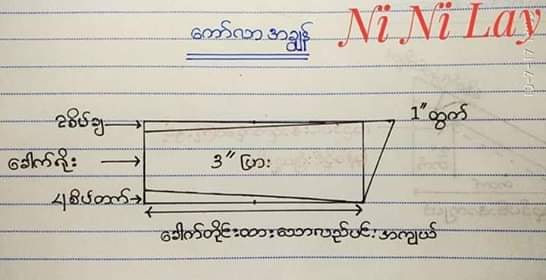 ကော်လာ အချွန်
Ni Ni Lay
1" ထွက်
2စိပ်ချ
ခေါက်ရိုး
3" ပြား
4စိပ်တက်
ခေါက်တိုင်းထားသောလည်ပင်း အကျယ်